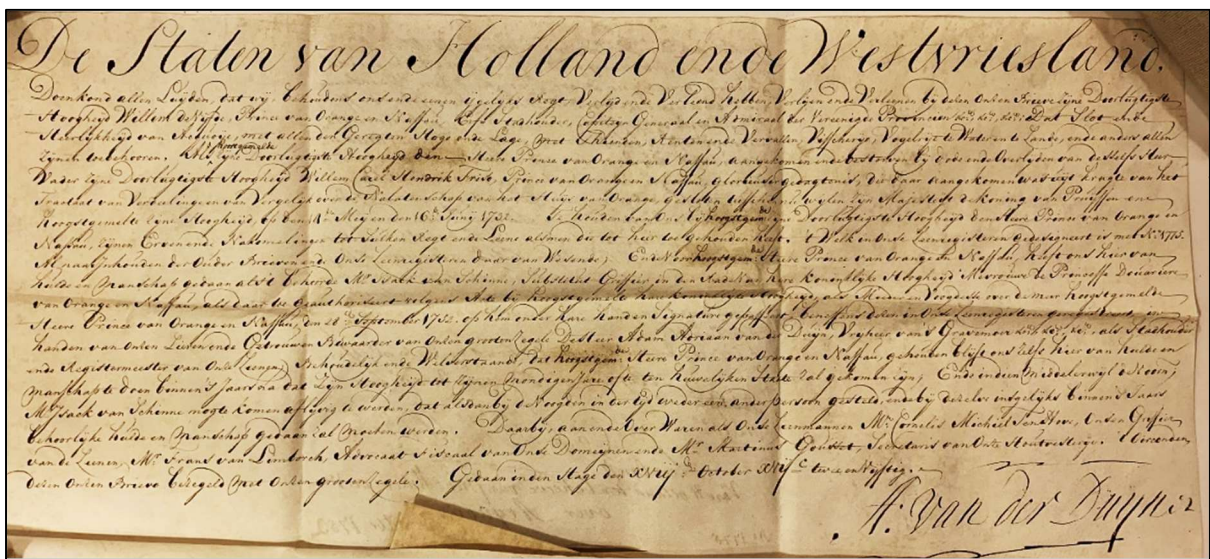 De Staten van Holland ende Westvriesland.
Doen kond allen Luijden, dat wij, behoudens ons ende eenen ijgelijks Regt, Verlijd ende Verleend hebben, Verlijen ende Verleenen bij desen Onsen Brieve Zijne Doorlugtigste
Hoogheijd Willem de Vijfde, Prince van Orange en Nassau, Erfstadhouder, Capiteijn Generaal en Admiraal der Vereenigde Provincien &c. &c. &c. Dat Slot ende
Heerlijkheijd van met allen den Geregten Hoge ende Lage, met Thienden, Renten ende Vervallen, Visscherije, Vogelrije te Water en te Lande, ende anders allen
Zijnen toebehooren. Als hoogstgemelde Zijne Doorlugtigste Hoogheijd den Heere Prince van Orange en Nassau, aangekomen ende bestorven bij dode ende Overlijden van desselfs Heer
Vader Zijne Doorlugtigste Hoogheijd Willem Carel Hendrik Friso, Prince van Orange en Nassau, glorieuser gedagtenis, die daar aangekomen was uijt kragte van het
Tractaat van Verdeelinge en van Vergelijk over de Nalatenschap van het Huis van Orange, gesloten tusschen nu wijlen Zijn Majesteit de Koning van Pruissen en
hoogstgemelte Zijne Hoogheijd op den 14e. Meij en den 16e. Junij 1732. Te houden van Ons bij hoogstgem: Zijne Doorlugtigste Hoogheijd den Heere Prince van Orange en
Nassau, Zijnen Erven ende Nakomelingen tot sulken Regt ende Leene als men die tot hier toe gehouden heeft. 't Welk in Onse Leenregisteren gedesigneert is met No. 1775.
Al naar Inhouden der Ouder Brieven ende Onse Leenregisteren daar van Wesende; Ende Voor hoogstgem: Heere Prince van Orange en Nassau, heeft ons hier van
hulde en Manschap gedaan als 't behoorde Mr. Isack van Schinne, Substitut Griffier in den Rade van hare Koninklijke Hoogheijd Mevrouwe de Princesse Douariere
van Orange en Nassau, als daar toe geauthoriseert volgens Acte bij hoogstgemelte hare Koninklijke Hoogheijd, als Moeder en Voogdesse over de meer hoogstgemelde
Heere Prince van Orange en Nassau, den September 1752. op hem onder hare handen Signature gepasseert, beneffens desen in Onse Leenregisteren geregistreert, in
handen van Onsen Lieven ende Getrouwen Bewaarder van Onsen grooten Zegele Des Heer Adam Adriaan van der Duijn, Vrijheer van 's Gravenmoer &c. &c. &c. als Stadhouder
ende Registermeester van Onse Leenen; Behoudelijk ende Welverstaande dat hoogstgem: Heere Prince van Orange en Nassau, gehouden blijft ons zelfs hier van hulde en
Manschap te doen binnen 's Jaars na dat Zijn Hoogheijd tot Zijnen Mondigen Jare ofte ten huwelijken State zal gekomen zijn; Ende indien middelerwijl d'Heer
Mr. Isack van Schinne mogte komen aflijvig te werden, dat alsdan bij d'Voogden in der tijd weder een ander persoon gesteld, ende bij deselve insgelijks binnen 's Jaars
behoorlijke hulde en Manschap gedaan zal moeten werden. Daar bij, aan ende Over Waren als Onse Leenmannen Mr. Cornelis Michiel ten Hove, Onsen Griffier
van de Leenen, Mr. Frans van Limborch, Advocaat Fiscaal van Onse Domeijnen ende Mr. Martinus Gousset, Secretaris van Onse Houtvesterije. T' Oirconden
desen Onsen Brieve besegeld met Onsen grooten Zegele. Gedaan in den Hage den October XVIIc. twee en Vijftig.
A: van der Duijn